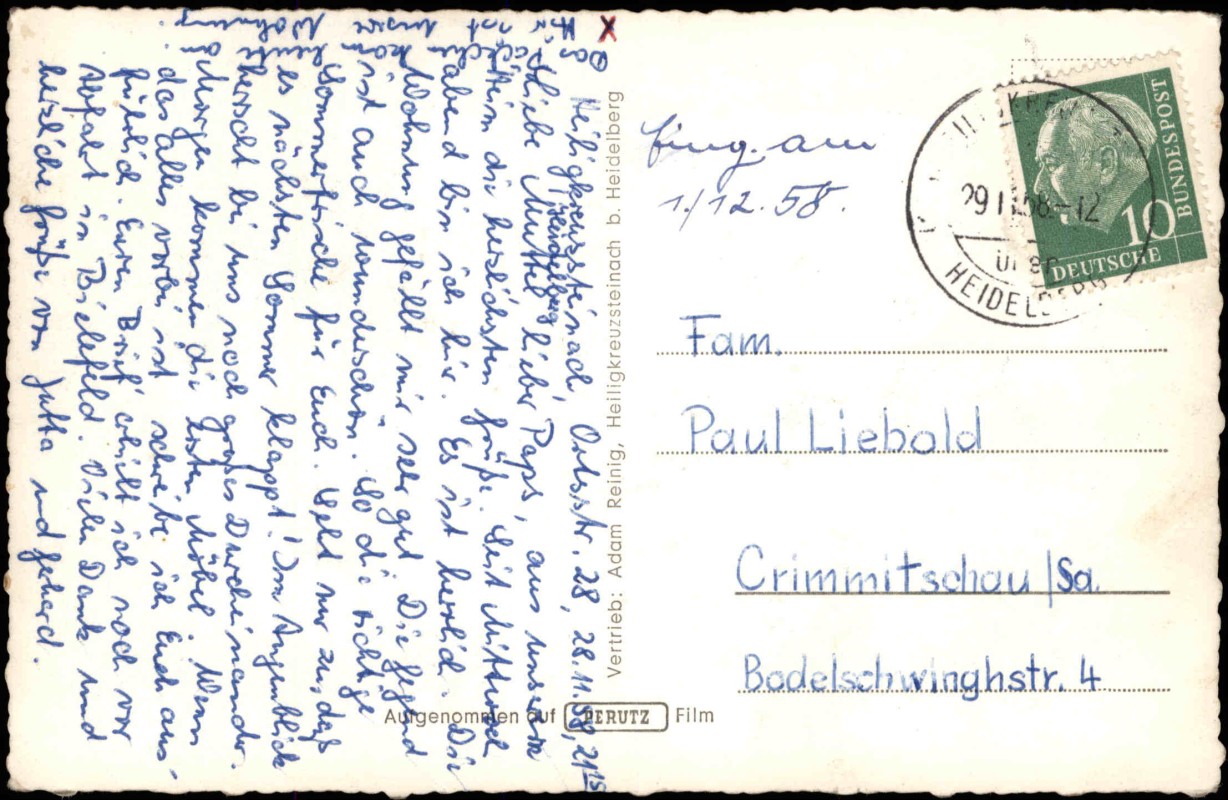 Heiligkreuzsteinach, Ortsstr. 28, 28.11.58, 21 15
Heidelberg
Liebe Mutti, lieber Paps, aus unserem
die herzlichsten Grüße. Seit Mittwoch
abend bin ich hier. Es ist herrlich. Die
Wohnung gefällt mir sehr gut. Die Gegend
ist auch wunderschön. So die richtige
Sommerfrische für Euch. Seht nur zu, daß
es nächsten Sommer klappt! Im Augenblick
herrscht bei uns noch großes Durcheinander.
Morgen kommen die ersten Möbel. Wenn
das alles vorbei ist, schreibe ich Euch aus-
führlich. Euren Brief erhielt ich noch vor
Abfahrt in Bielefeld. Vielen Dank und
herzliche Grüße von Jutta und Gerhard.
X Das
ist
unsere
Wohnung
Vertrieb: Adam Reinig, Heiligkreuzsteinach b. Heidelberg
Aufgenommen auf PERUTZ Film
Eing. am
1./12. 58.
DEUTSCHE BUNDESPOST
10
29.11.58-12
über
HEIDELBERG
Fam.
Paul Liebold
Crimmitschau/Sa.
Bodelschwinghstr. 4